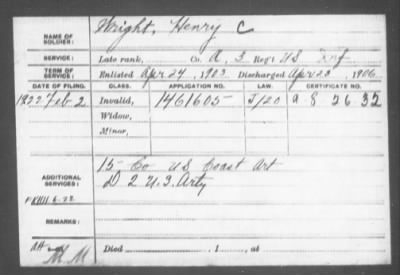 NAME OF SOLDIER: Wright, Henry C
SERVICE: Late rank, Co. A, 3 Reg't US Inf
TERM OF SERVICE: Enlisted Apr 24, 1903 Discharged Apr 23, 1906
DATE OF FILING. CLASS. APPLICATION NO. LAW. CERTIFICATE NO.
1922 Feb 2 Invalid, 1461605 J/20 A 8 26 32
Widow,
Minor,
ADDITIONAL SERVICES: 15 Co US Coast Art
D 2 U.S. Arty
REMARKS:
Died , 1 , at